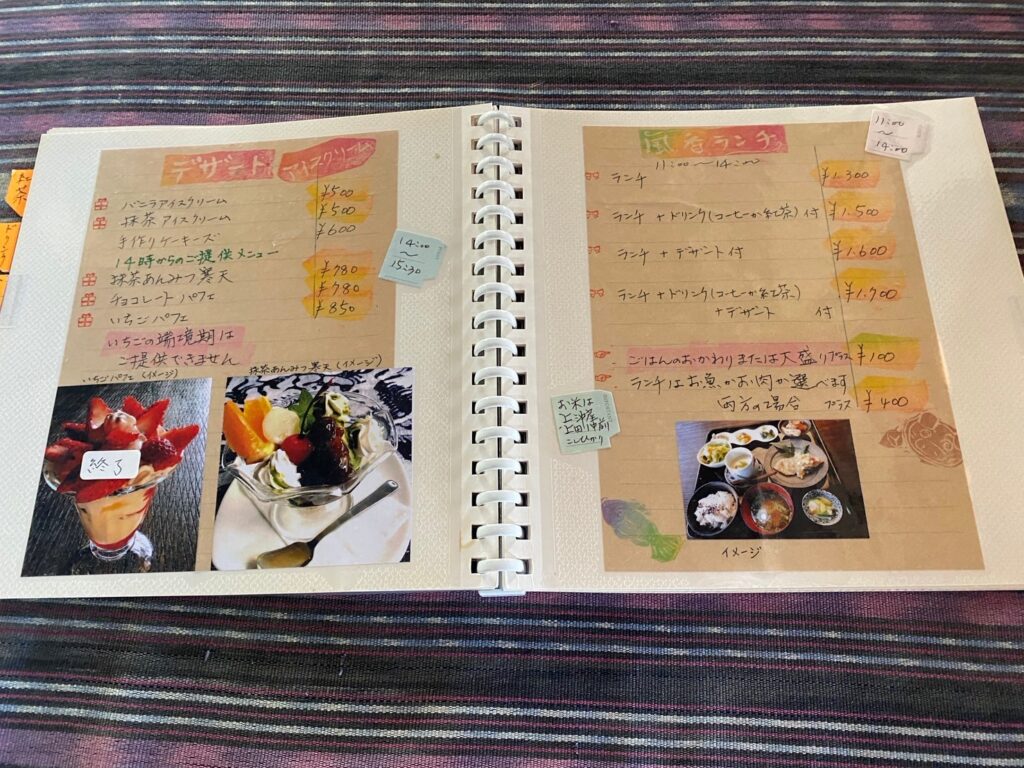 デザート アイスクリーム
バニラアイスクリーム ¥500
抹茶アイスクリーム ¥500
手作りケーキーズ ¥600
14時からのご提供メニュー
抹茶あんみつ寒天 ¥780
チョコレートパフェ ¥780
いちごパフェ ¥850
いちごの端境期は
ご提供できません
いちごパフェ(イメージ)
抹茶あんみつ寒天(イメージ)
終了
14:00
~
15:30
ランチ
11:00~14:00
ランチ ¥1.300
ランチ+ドリンク(コーヒーか紅茶)付 ¥1.500
ランチ+デザート付 ¥1.600
ランチ+ドリンク(コーヒーか紅茶) ¥1.700
+デザート 付
ごはんのおかわりまたは大盛りプラス ¥100
ランチはお魚かお肉が選べます
両方の場合 プラス ¥400
イメージ
11:00
~
14:00
お米は
上沖産
コシヒカリ
紅茶
ドリンク